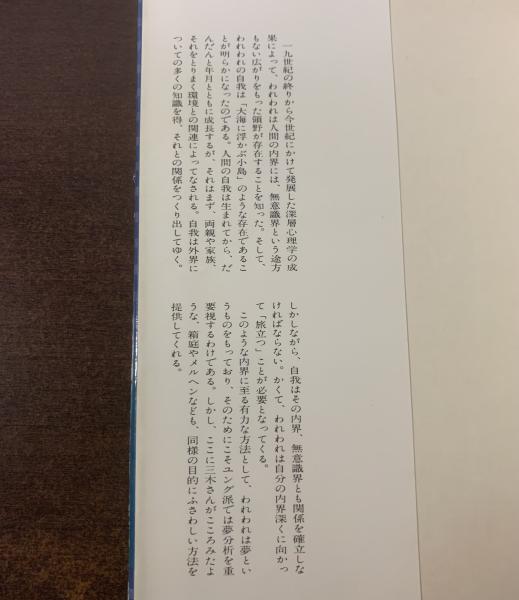 一九世紀の終りから今世紀にかけて発展した深層心理学の成
果によって、われわれは人間の内界には、無意識界という途方
もない広がりをもった領野が存在することを知った。そして、
われわれの自我は「大海に浮かぶ小島」のような存在であるこ
とが明らかになったのである。人間の自我は生まれてから、だ
んだんと年月とともに成長するが、それはまず、両親や家族、
それをとりまく環境との関連によってなされる。自我は外界に
ついての多くの知識を得、それとの関係をつくり出してゆく。
しかしながら、自我はその内界、無意識界とも関係を確立しな
ければならない。かくて、われわれは自分の内界深くに向かっ
て「旅立つ」ことが必要となってくる。
このような内界に至る有力な方法として、われわれは夢とい
うものをもっており、そのためにこそユング派では夢分析を重
要視するわけである。しかし、ここに三木さんがこころみたよ
うな、箱庭やメルヘンなども、同様の目的にふさわしい方法を
提供してくれる。